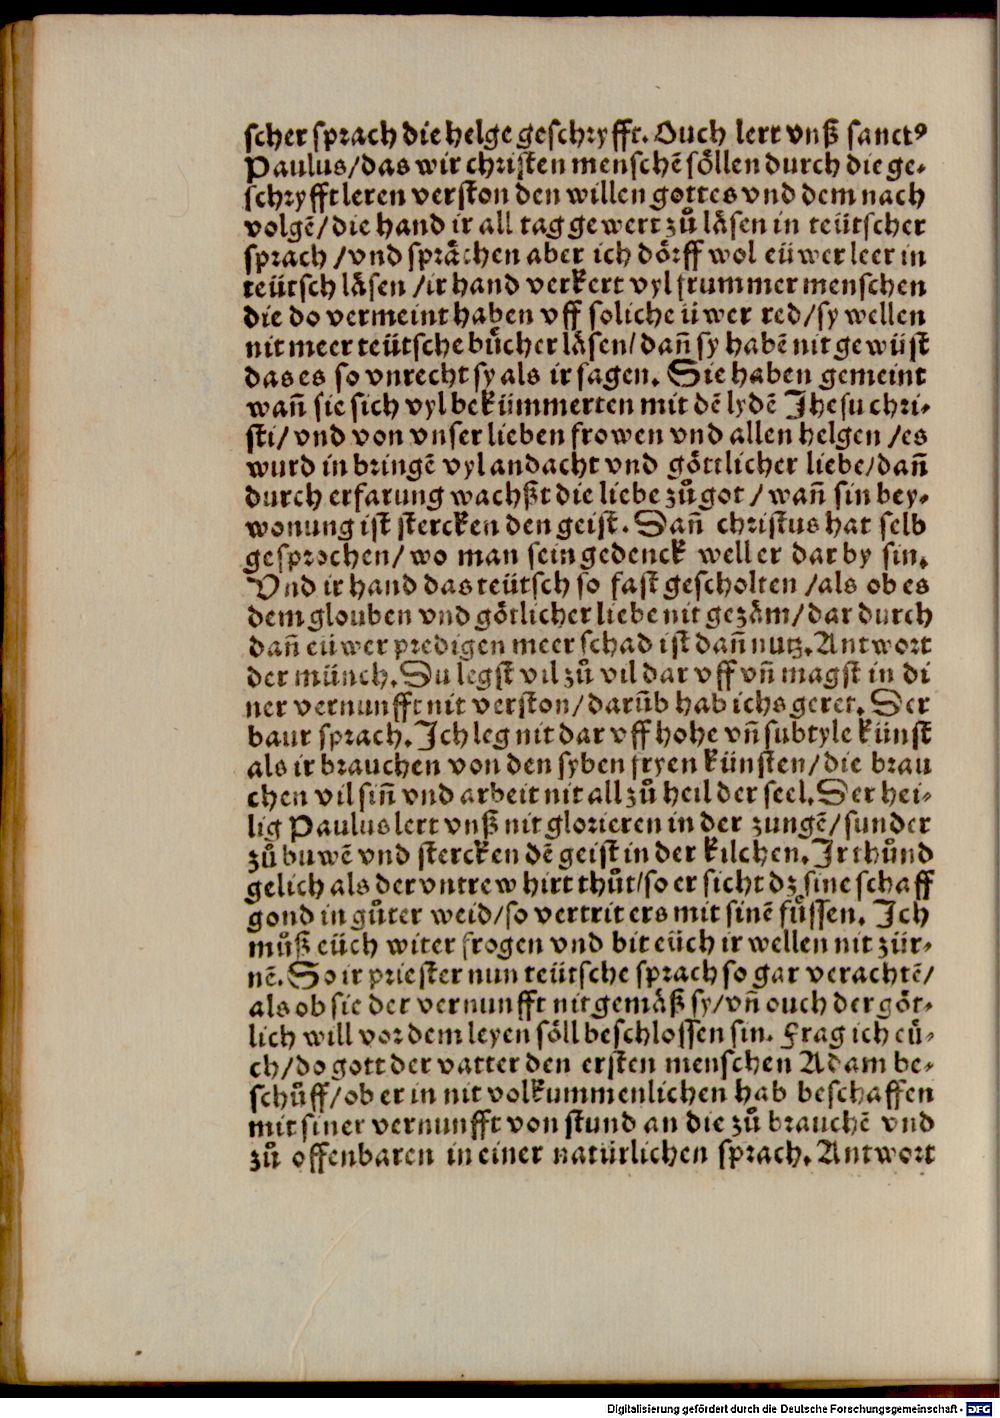 scher sprach die helge geschryfft. Ouch lert vnß sanctꝰ
Paulus/das wir christen menschē söllen durch die ge-
schryfft leren verston den willen gottes vnd dem nach
volgē/die hand ir all tag gewert zů läsen in teütscher
sprach/vnd sprächen aber ich dörff wol eüwer leer in
teütsch läsen/ir hand verkert vyl frummer menschen
die do vermeint haben vff soliche üwer red/sy wellen
nit meer teütsche bücher läsen/dañ sy habē nit gewüst
das es so vnrecht sy als ir sagen. Sie haben gemeint
wañ sie sich vyl bekümmerten mit dē lydē Jhesu chri-
sti/vnd von vnser lieben frowen vnd allen helgen/es
wurd in bringē vyl andacht vnd göttlicher liebe/dañ
durch erfarung wachßt die liebe zů got/wañ sin bey-
wonung ist stercken den geist. Dañ christus hat selb
gesprochen/wo man sein gedenck well er dar by sin.
Vnd ir hand das teütsch so fast gescholten/als ob es
dem glouben vnd götlicher liebe nit gezäm/dar durch
dañ eüwer predigen meer schad ist dañ nutz. Antwort
der münch. Du legst vil zů vil dar vff vñ magst in di
ner vernunfft nit verston/darūb hab ichs geret. Der
baur sprach. Ich leg nit dar vff hohe vñ subtyle künst
als ir brauchen von den syben fryen künsten/die brau
chen vil siñ vnd arbeit nit all zů heil der seel. Der hei-
lig Paulus lert vnß nit glorieren in der zungē/sunder
zů buwē vnd stercken dē geist in der kilchen. Ir thůnd
gelich als der vntrew hirt thůt/so er sicht dz sine schaff
gond in gůter weid/so vertrit ers mit sinē füssen. Ich
můß eüch witer frogen vnd bit eüch ir wellen nit zür-
nē. So ir priester nun teütsche sprach so gar verachtē/
als ob sie der vernunfft nit gemäß sy/vñ ouch der göt-
lich will vor dem leyen söll beschlossen sin. Frag ich eü-
ch/do gott der vatter den ersten menschen Adam be-
schůff/ob er in nit volkummenlichen hab beschaffen
mit siner vernunfft von stund an die zů brauchē vnd
zů offenbaren in einer natürlichen sprach. Antwort
Digitalisierung gefördert durch die Deutsche Forschungsgemeinschaft - DFG